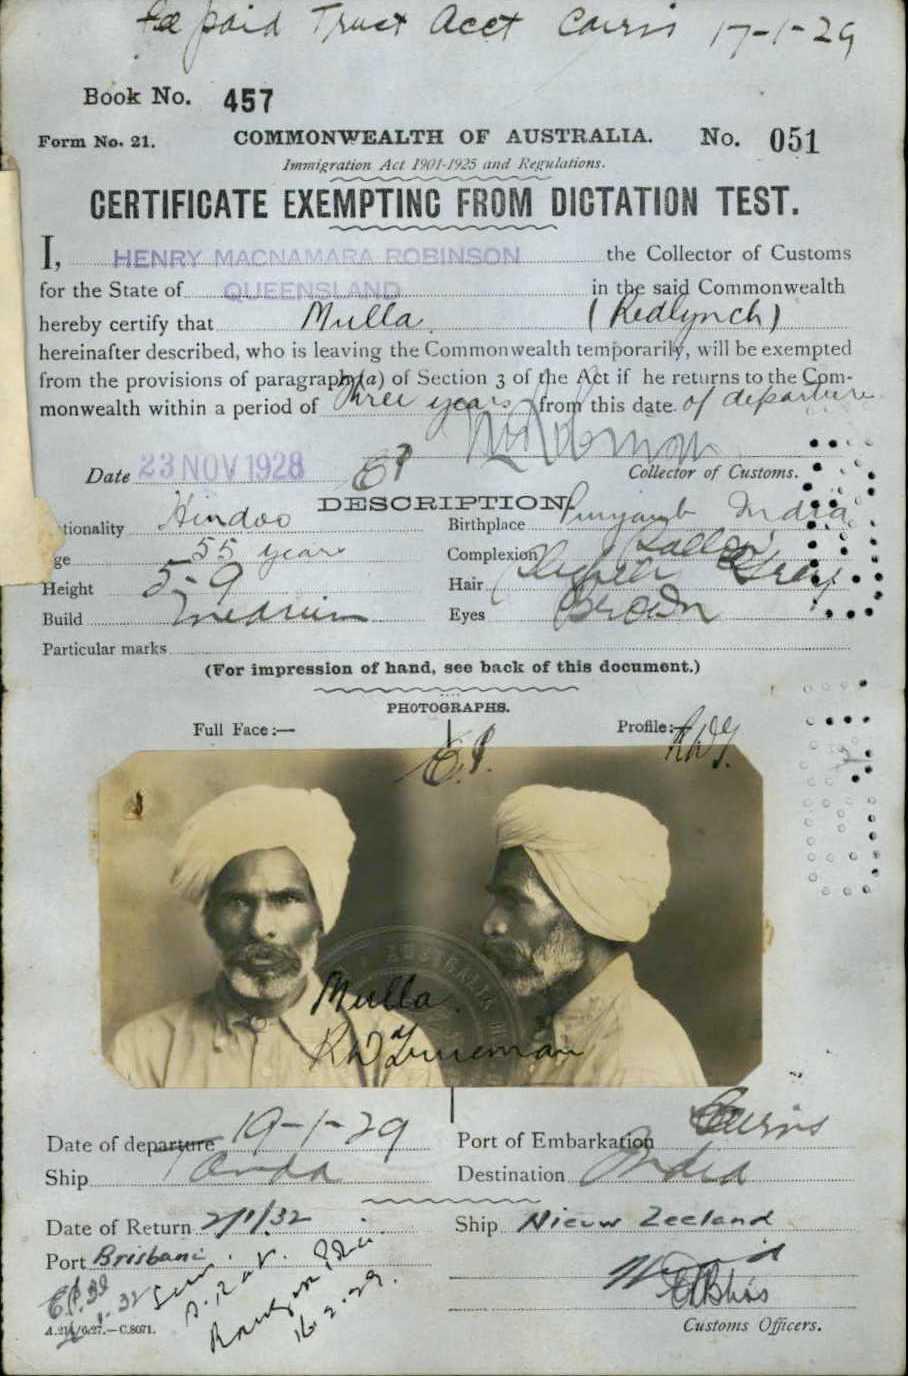 paid Trust Acct Cairns 17-1-29
Book No. 457
Form No. 21. COMMONWEALTH OF AUSTRALIA. No. 051
Immigration Act 1901-1925 and Regulations.
CERTIFICATE EXEMPTING FROM DICTATION TEST.
I, HENRY MACNAMARA ROBINSON the Collector of Customs
for the State of QUEENSLAND in the said Commonwealth
hereby certify that Mulla (Redlynch)
hereinafter described, who is leaving the Commonwealth temporarily, will be exempted
from the provisions of paragraph (a) of Section 3 of the Act if he returns to the Com-
monwealth within a period of three years from this date of departure
Date 23 NOV 1928 Collector of Customs.
DESCRIPTION.
tionality Hindoo Birthplace Punjaub India
ge 55 years Complexion
Height 5-9 Hair Grey
Build Medium Eyes Brown
Particular marks
(For impression of hand, see back of this document.)
PHOTOGRAPHS.
Full Face:— Profile:—
E.P. RWT.
AUSTRALIA
Mulla.
Date of departure 19-1-29 Port of Embarkation Cairns
Ship Tanda Destination India
Date of Return 2/1/32 Ship Nieuw Zeeland
Port Brisbane
16.2.29.
A.21A/6.27.—C.8071. Customs Officers.